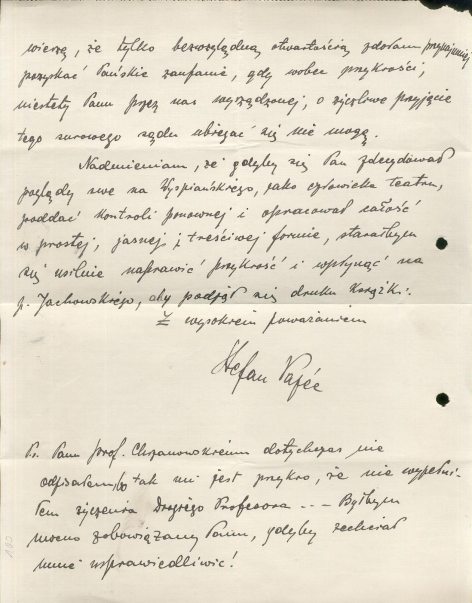 wierzę, że tylko bezwzględną otwartością zdołam przynajmniej
pozyskać Pańskie zaufanie, gdy wobec przykrości,
niestety Panu przez nas wyrządzonej, o życzliwe przyjęcie
tego surowego sądu ubiegać się nie mogę.
Nadmieniam, że gdyby się Pan zdecydował
poglądy swe na Wyspiańskiego, jako człowieka teatru,
poddać kontroli ponownej i opracował całość
w prostej, jasnej i treściwej formie, starałbym
się usilnie naprawić przykrość i wpłynąć na
p. Jachowskiego, aby podjął się druku książki.
Z wysokiem poważaniem
Stefan Papée
Ps. Panu prof. Chrzanowskiemu dotychczas nie
odpisałem, bo tak mi jest przykro, że nie wypełni-
łem życzenia Drogiego Profesora --- Byłbym
mocno zobowiązany Panu, gdyby zechciał
mnie usprawiedliwić!